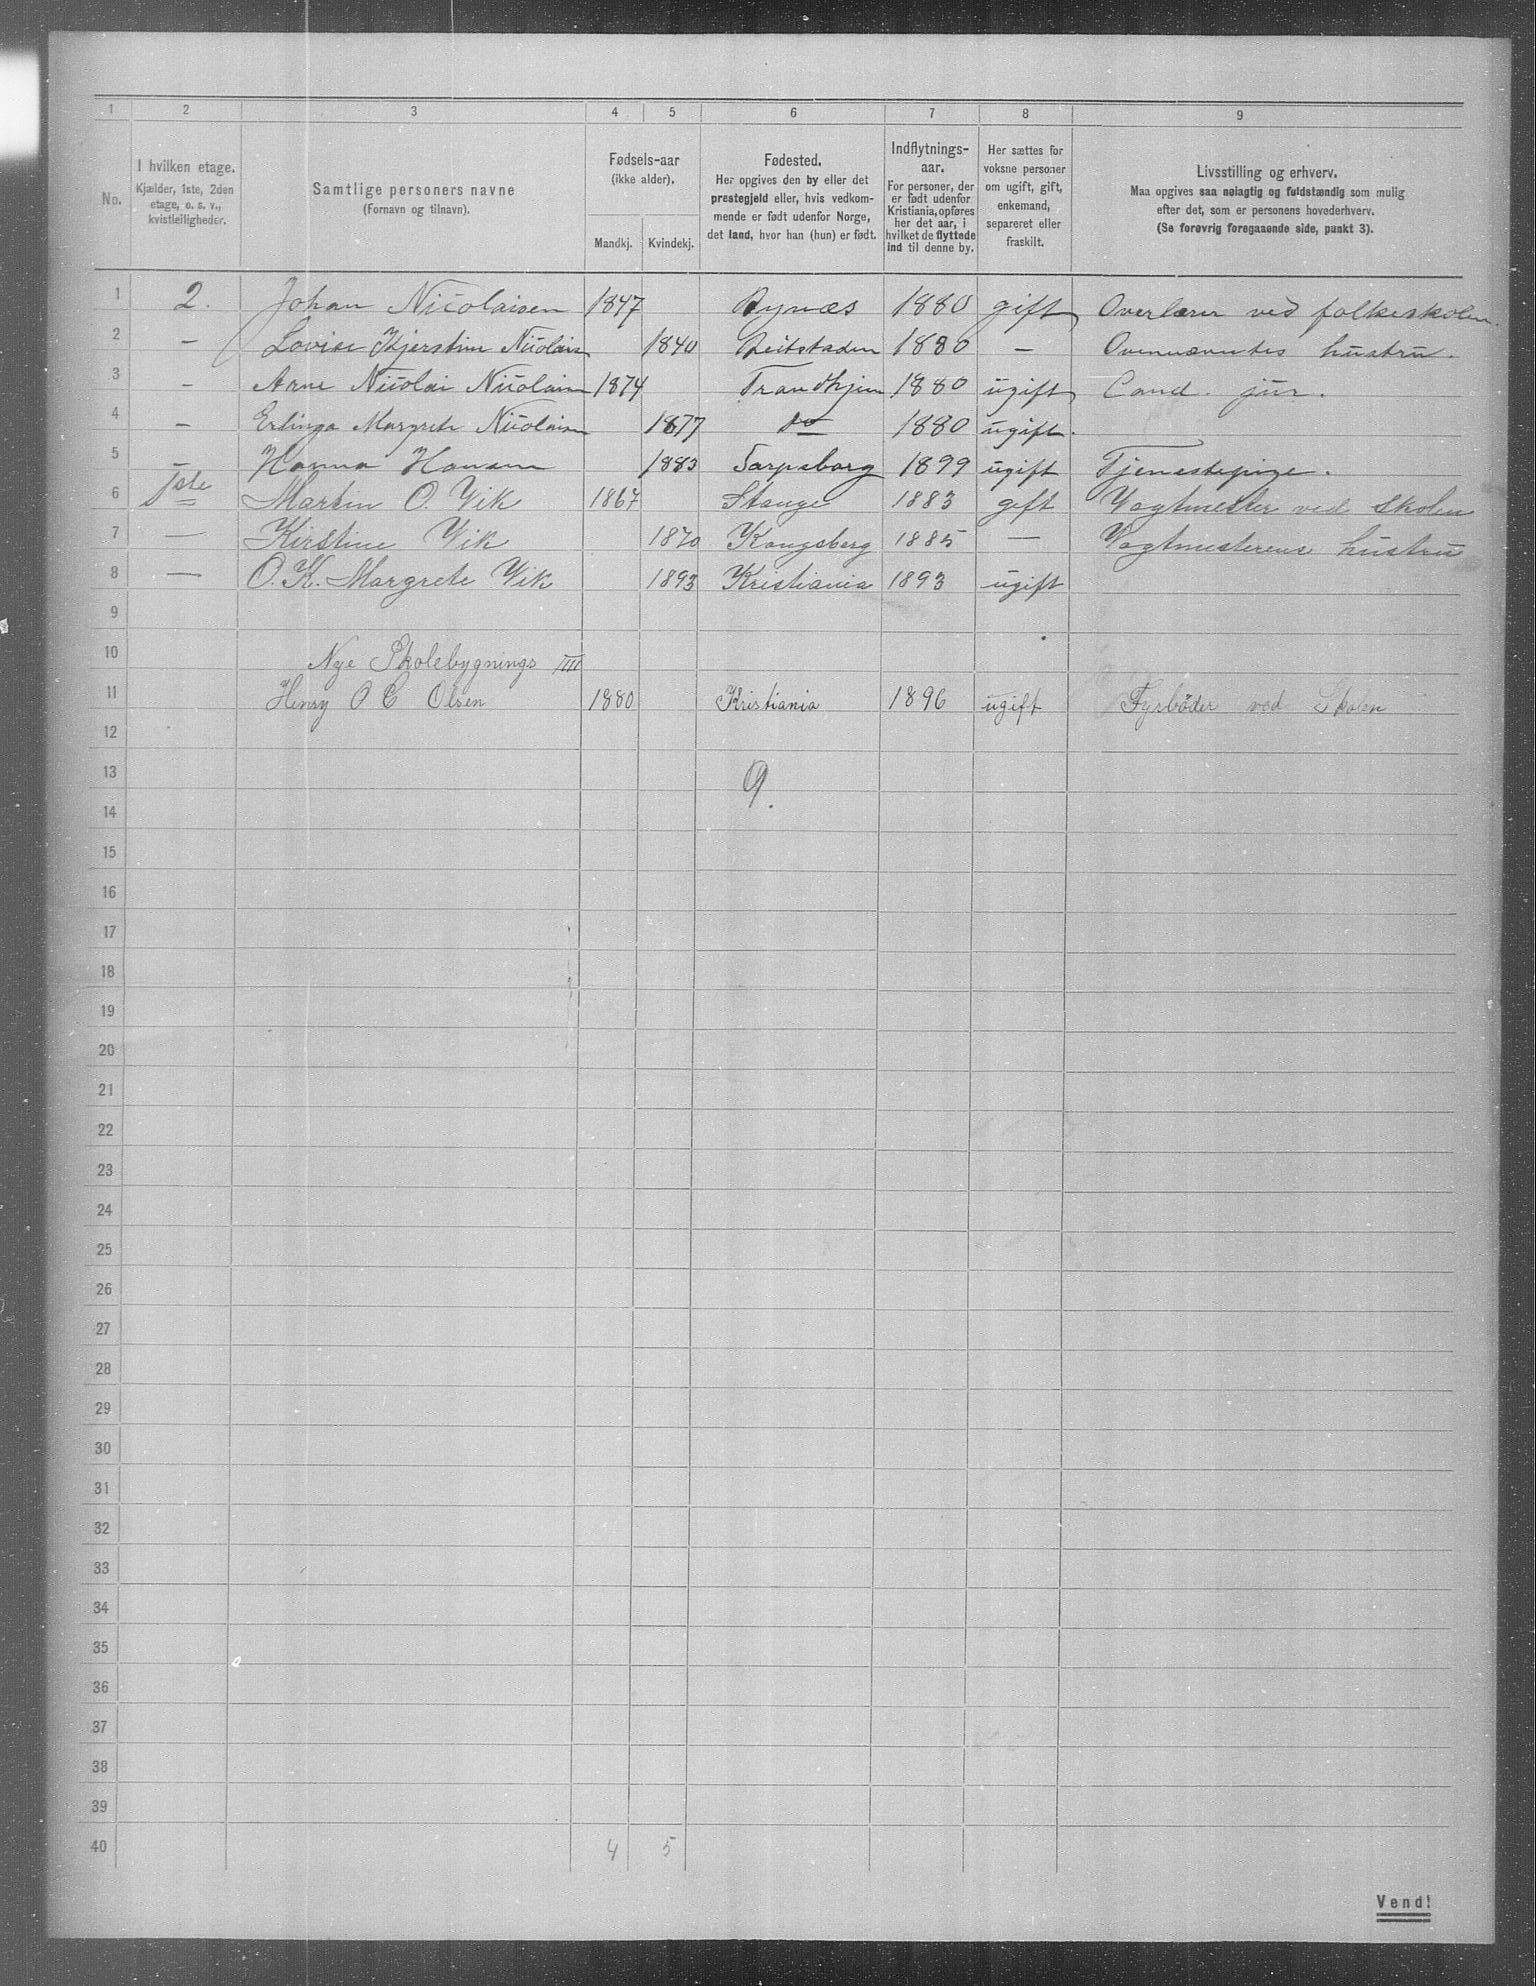 1 2 3 4 5 6 7 8 9
No. I hvilken etage. Kjælder, 1ste, 2den etage, o. s. v., kvistleiligheder. Samtlige personers navne (Fornavn og tilnavn). Fødsels-aar (ikke alder). Mandkj. Kvindekj. Fødested. Her opgives den by eller det prestegjeld eller, hvis vedkommende er født udenfor Norge, det land, hvor han (hun) er født. Indflytnings-aar. For personer, der er født udenfor Kristiania, opføres her det aar, i hvilket de flyttede ind til denne by. Her sættes for voksne personer om ugift, gift, enkemand, separeret eller fraskilt. Livsstilling og erhverv. Maa opgives saa nøiagtig og fuldstændig som mulig efter det, som er personens hovederhverv. (Se forøvrig foregaaende side, punkt 3).
1 2. Johan Nicolaisen 1847 Bynæs 1880 gift Overlærer ved folkeskolen.
2 — Lovise Kjerstine Nicolaisen 1840 Beitstaden 1880 — Ovennævntes hustru.
3 — Arne Nicolai Nicolaisen 1874 Trondhjem 1880 ugift Cand. jur.
4 — Erlinga Margrete Nicolaisen 1877 do 1880 ugift.
5 — Hanna Hansen 1883 Sarpsborg 1899 ugift Tjenestepige.
6 1ste Martin O. Vik 1867 Stange 1883 gift Vagtmester ved skolen
7 — Kirstine Vik 1870 Kongsberg 1885 — Vagtmesterens hustru
8 — O. K. Margrete Vik 1893 Kristiania 1893 ugift
9
10 Nye Skolebygnings III
11 Henry O C Olsen 1880 Kristiania 1896 ugift Fyrbøder ved Skolen
12
13 9.
14
15
16
17
18
19
20
21
22
23
24
25
26
27
28
29
30
31
32
33
34
35
36
37
38
39
40 4 5
Vend!